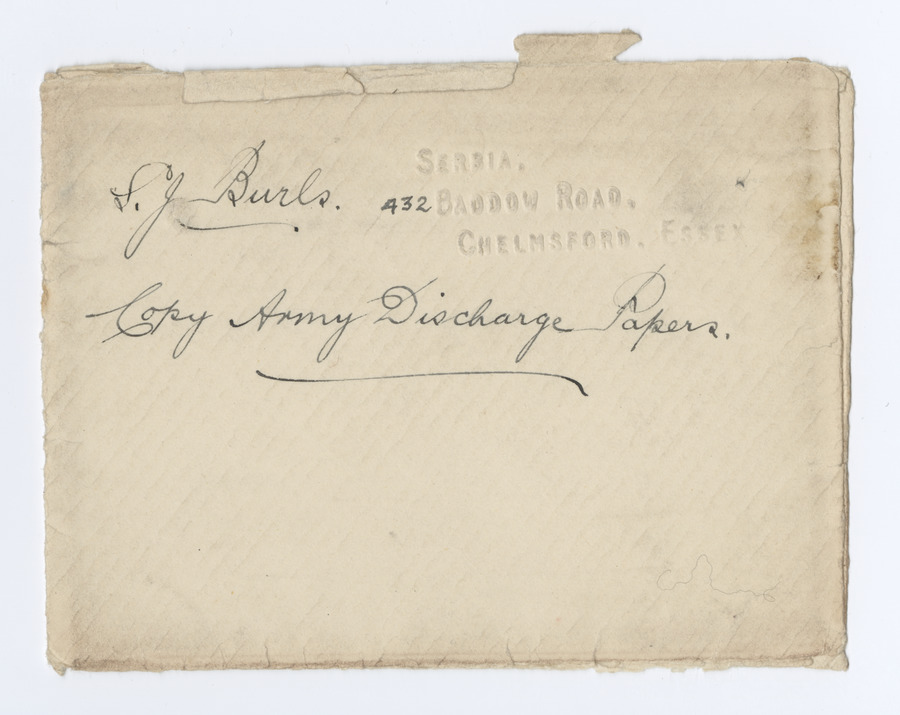 S. J Burls.
SERBIA.
432 BADDOW ROAD,
CHELMSFORD. ESSEX
Copy Army Discharge Papers.